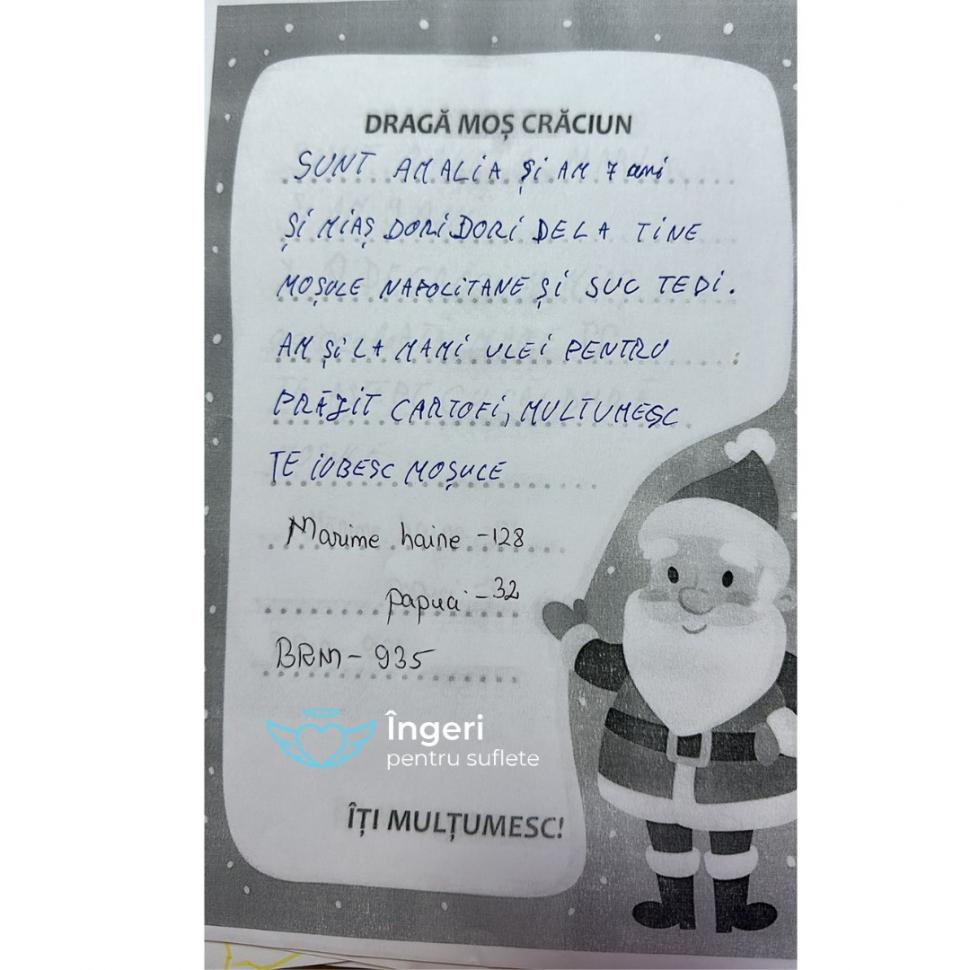 DRAGĂ MOȘ CRĂCIUN
SUNT AMALIA ȘI AM 7 ani
ȘI MIAȘ DORI DORI DELA TINE
MOȘULE NAPOLITANE ȘI SUC TEDI.
AM ȘI LA MAMI ULEI PENTRU
PRĂJIT CARTOFI, MULTUMESC
TE IUBESC MOȘULE
Marime haine - 128
papuci - 32
BRM - 935
Îngeri
pentru suflete
ÎȚI MULȚUMESC!